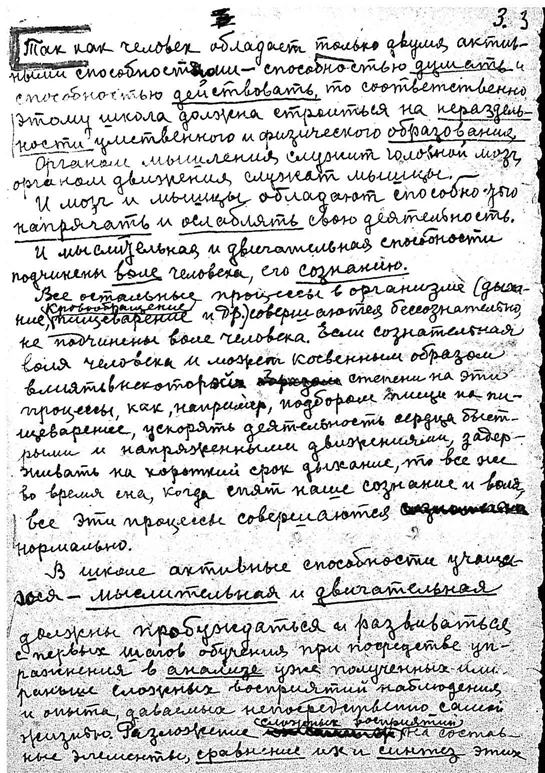 3. 3
Так как человек обладает только двумя актив-
ными способностями – способностью думать и
способностью действовать, то соответственно
этому школа должна строиться на нераздель-
ности умственного и физического образования.
Органом мышления служит головной мозг,
органом движения служат мышцы.
И мозг и мышцы обладают способностью
напрягать и ослаблять свою деятельность.
И мыслительная и двигательная способности
подчинены воле человека, его сознанию.
Все остальные процессы в организме (дыха-
ние, кровообращение, пищеварение и др.) совершаются бессознательно,
не подчинены воле человека. Если сознательная
воля человека и может косвенным образом
влиять в некоторой степени на эти
процессы, как, например, подбором пищи на пи-
щеварение, ускорять деятельность сердца быст-
рыми и напряженными движениями, задер-
живать на короткий срок дыхание, то все же
во время сна, когда спят наше сознание и воля,
все эти процессы совершаются
нормально.
В школе активные способности учаще-
гося – мыслительная и двигательная
должны пробуждаться и развиваться
с первых шагов обучения при посредстве уп-
ражнения в анализе уже полученных ими
раньше сложных восприятий наблюдения
и опыта, даваемых непосредственно самой
жизнью. Разложение сложных восприятий на состав-
ные элементы, сравнение их и синтез этих